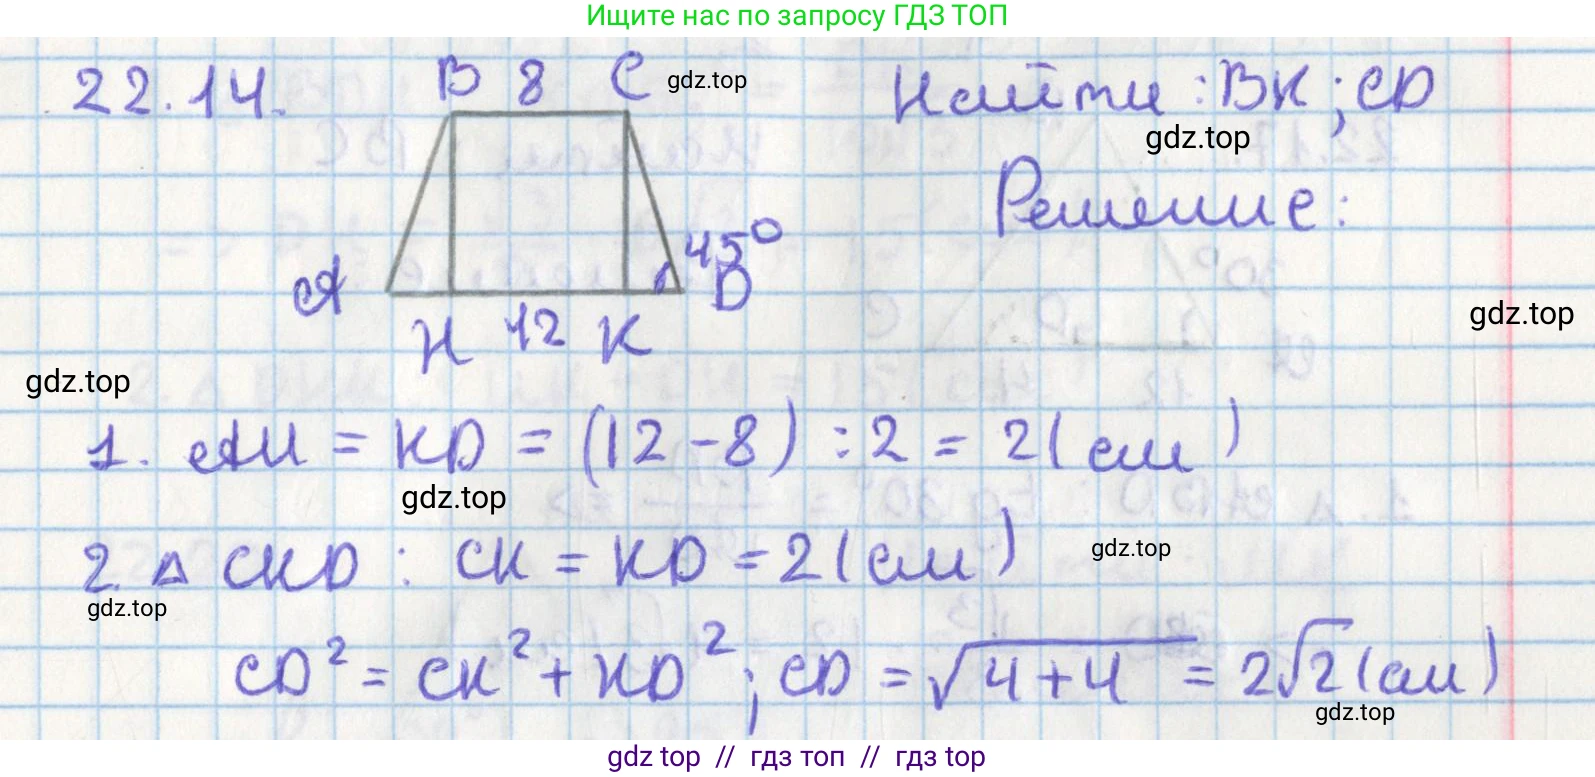 Ищите нас по запросу ГДЗ ТОП
22.14.
B 8 C
gdz.top
Найти: BK; CD
gdz.top
Решение:
45°
A
D
H 12 K
gdz.top
gdz.top
1. AH = KD = (12 - 8) : 2 = 2 (см)
gdz.top
2. △ CKD : CK = KD = 2 (см)
gdz.top
gdz.top
CD² = CK² + KD²; CD = √4+4 = 2√2 (см)
gdz.top
gdz top // гдз топ // гдз top